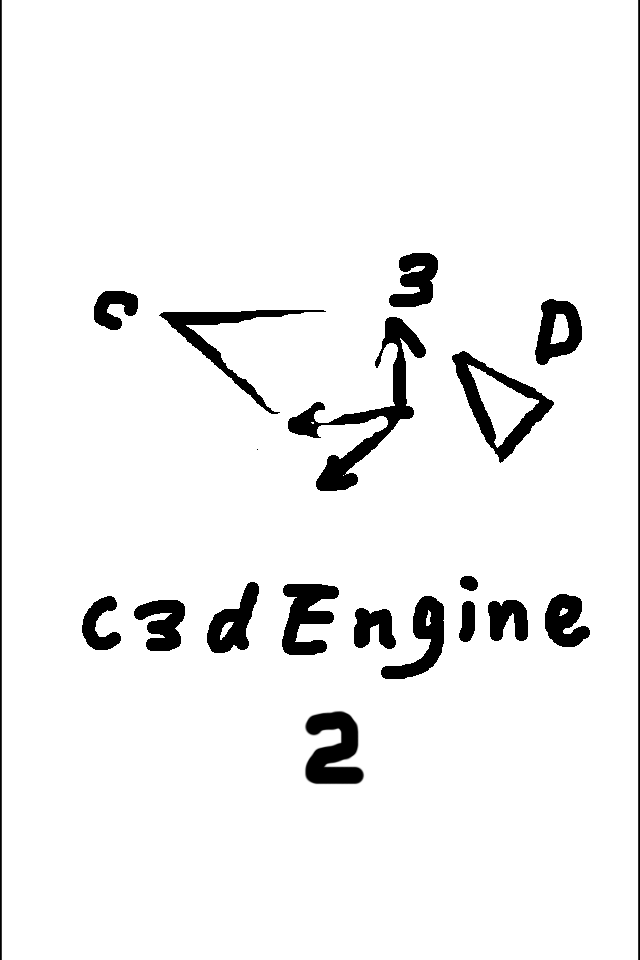 C 3 D
c3dEngine
2